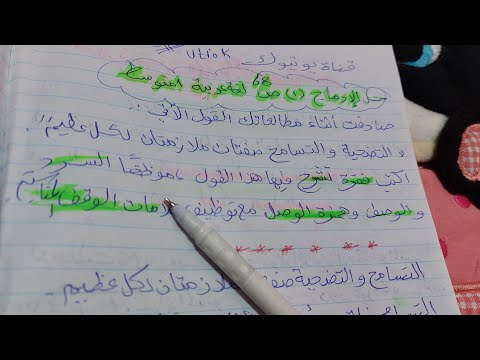 قناة يوتيوب utick
حل الإدماج (2) ص 68 لغة عربية 1 متوسط
صادفت أثناء مطالعاتك القول الآتي:
"التضحية و التسامح صفتان ملازمتان لكل عظيم".
اكتب فقرة تشرح فيها هذا القول، موظفًا السرد
و الوصف وهمزة الوصل مع توظيف علامات الوقف المناسبة
* * * * * *
التسامح و التضحية ملازمتان لكل عظيم.
التسامح